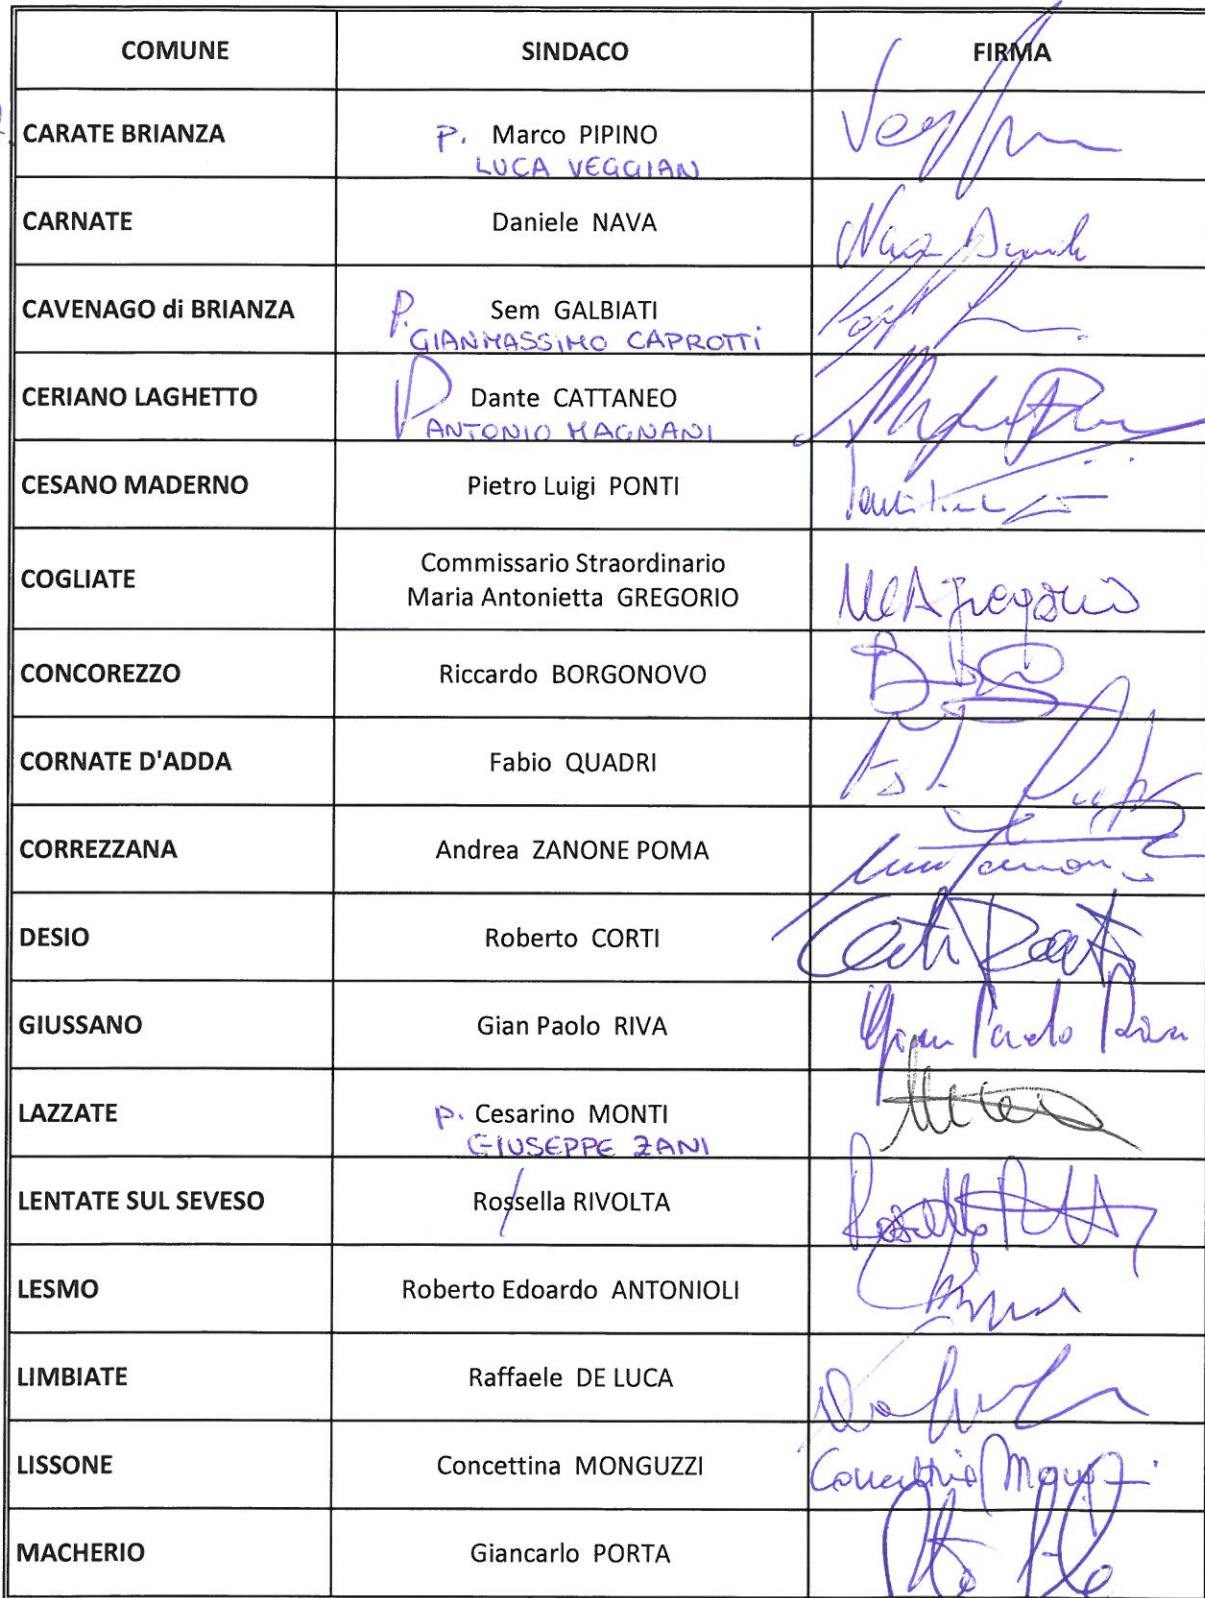 COMUNE SINDACO FIRMA
CARATE BRIANZA P. Marco PIPINO
LUCA VEGGIAN
CARNATE Daniele NAVA
CAVENAGO di BRIANZA P. Sem GALBIATI
GIANMASSIMO CAPROTTI
CERIANO LAGHETTO P Dante CATTANEO
ANTONIO MAGNANI
CESANO MADERNO Pietro Luigi PONTI
Commissario Straordinario
COGLIATE Maria Antonietta GREGORIO MAGregorio
CONCOREZZO Riccardo BORGONOVO
CORNATE D'ADDA Fabio QUADRI
CORREZZANA Andrea ZANONE POMA
DESIO Roberto CORTI
GIUSSANO Gian Paolo RIVA Gian Paolo Riva
LAZZATE P. Cesarino MONTI
GIUSEPPE ZANI
LENTATE SUL SEVESO Rossella RIVOLTA
LESMO Roberto Edoardo ANTONIOLI
LIMBIATE Raffaele DE LUCA
LISSONE Concettina MONGUZZI
MACHERIO Giancarlo PORTA